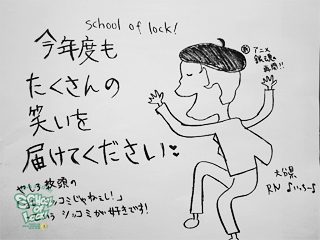 school of lock!
今年度も
たくさんの
笑いを
届けてください
やしろ教頭の
「ツッコミじゃねぇし!」
ツッコミが好きです!
アニメ
銀魂
再開!!
大分県
RN